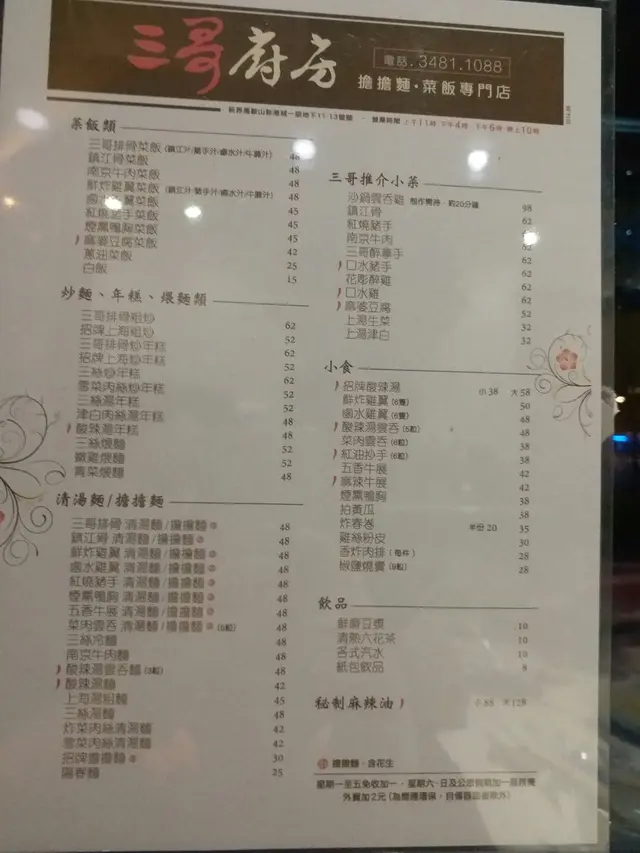 三哥廚房
電話.3481.1088
擔擔麵·菜飯專門店
菜飯類
三哥排骨菜飯 (鎮江汁/豬手汁/鹵水汁/牛腩汁) 48
鎮江骨菜飯 48
南京牛肉菜飯 48
鮮炸雞翼菜飯 (鎮江汁/豬手汁/鹵水汁/牛腩汁) 48
鹵水雞翼菜飯 48
紅燒豬手菜飯 45
煙熏鴨胸菜飯 45
麻婆豆腐菜飯 45
蔥油菜飯 25
白飯 15
炒麵、年糕、煨麵類
三哥排骨粗炒 62
招牌上海粗炒 52
三哥排骨炒年糕 62
招牌上海炒年糕 52
三絲炒年糕 52
雪菜肉絲炒年糕
三絲湯年糕 52
津白肉絲湯年糕 48
酸辣湯年糕 48
三絲煨麵 52
嫩雞煨麵 52
青菜煨麵 48
清湯麵/擔擔麵
三哥排骨 清湯麵/擔擔麵 48
鎮江骨 清湯麵/擔擔麵 48
鮮炸雞翼 清湯麵/擔擔麵 48
鹵水雞翼 清湯麵/擔擔麵 48
紅燒豬手 清湯麵/擔擔麵 48
煙熏鴨胸 清湯麵/擔擔麵 48
五香牛展 清湯麵/擔擔麵 48
菜肉雲吞 清湯麵/擔擔麵 (6粒) 48
三絲冷麵 48
南京牛肉麵 48
酸辣湯雲吞麵 48
酸辣湯麵 42
上海湯粗麵 45
三絲湯麵 48
炸菜肉絲清湯麵 42
雪菜肉絲清湯麵 42
招牌擔擔麵 30
陽春麵 25
三哥推介小菜
沙鍋雲吞雞 製作需時，約20分鐘 98
鎮江骨 62
紅燒豬手 62
南京牛肉 62
三哥醉豬手 62
口水豬手 62
花彫醉雞 62
口水雞 62
麻婆豆腐 52
上湯生菜 32
上湯津白 32
小食
招牌酸辣湯 小 38 大 58
鮮炸雞翼 (6隻) 50
鹵水雞翼 (6隻) 48
酸辣湯雲吞 (6粒) 48
菜肉雲吞 (6粒) 38
紅油抄手 (6粒) 38
五香牛展 42
麻辣牛展 42
煙熏鴨胸 38
拍黃瓜 38
炸春卷 半份 20 35
雞絲粉皮 30
香炸肉排 (每件) 28
椒鹽燒賣 28
飲品
鮮磨豆漿 10
清熱六花茶 10
各式汽水 10
紙包飲品 8
秘制麻辣油 小 88 大 128
擔擔麵，含花生
星期一至五免收加一，星期六、日及公眾假期加一服務費
外賣加2元 (為響應環保，自備器皿者除外)